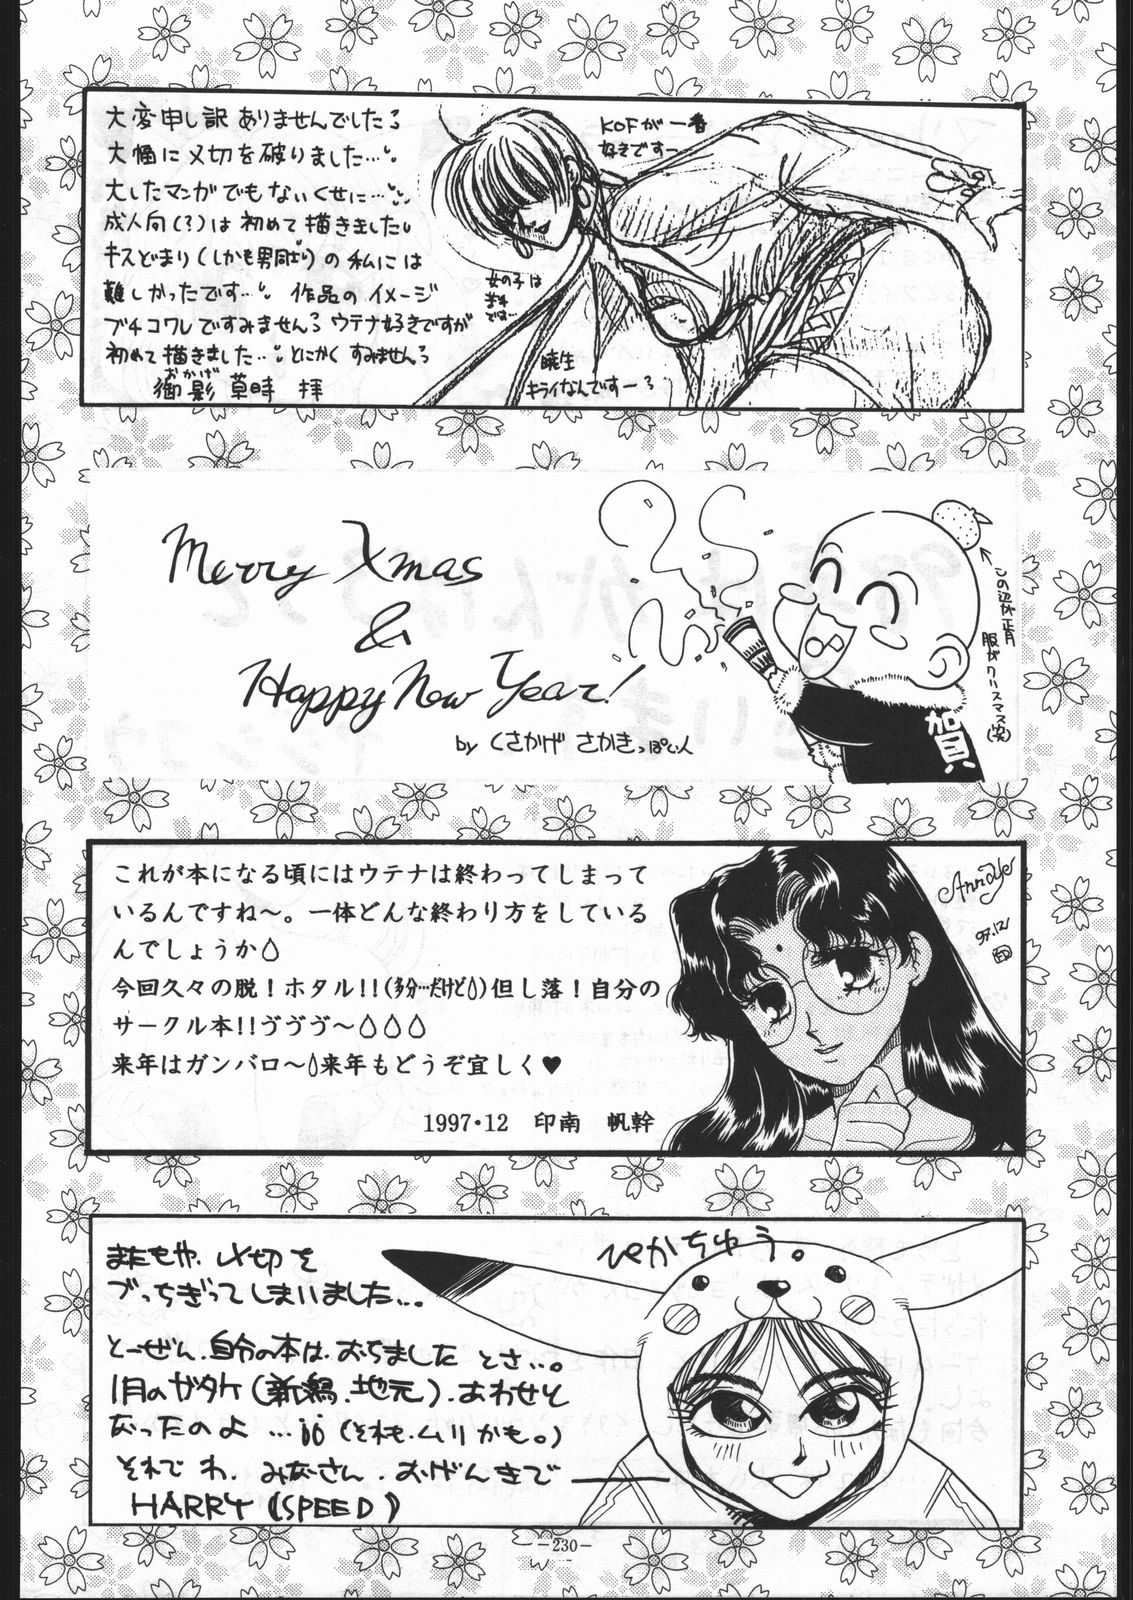 大変申し訳ありませんでした
大幅に〆切を破りました…
大したマンガでもないくせに…
成人向(?)は初めて描きました
キスどまり(しかも男同士)の私には
難しかったです… 作品のイメージ
ブチコワレですみません ウテナ好きですが
初めて描きました… とにかくすみません
おかげ
御影 草時 拝
KOFが一番
好きですー
女の子は
苦手
では…
暁生
キライなんですー
Merry Xmas
&
Happy New Year!
by くさかげ さかきっぽい人
この辺が正月
服がクリスマス(笑)
賀
これが本になる頃にはウテナは終わってしまって
いるんですね〜。一体どんな終わり方をしている
んでしょうか
今回久々の脱!ホタル!!(多分…だけど)但し落!自分の
サークル本!!ヴヴヴ〜
来年はガンバロ〜来年もどうぞ宜しく♥
1997・12 印南 帆幹
97.12/
印
またもや、〆切を
ブっちぎってしまいました...
とーぜん、自分の本は、おちました とさ...。
1月のガタケ(新潟、地元)、あわせと
なったのよ …(それも、ムリかも。)
それでわ、みなさん、おげんきで
HARRY(SPEED)
ぴかちゅう。
-230-